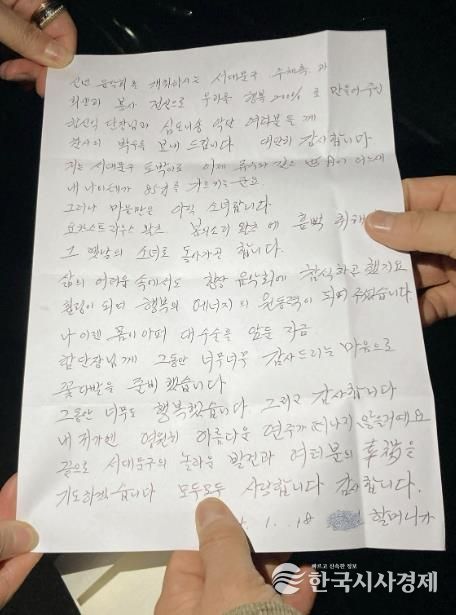 신년 음악회를 개최하시는 서대문구 주최측과
최선의 봉사 정신으로 우리를 행복 200% 로 만들어주신
함신익 단장님과 심포니송 악단 여러분들께
감사의 박수를 보내 드립니다 대단히 감사합니다
저는 서대문구 토박이로 이제 유수와 같은 어느새
내 나이테가 를 가르키는군요.
그러나 마음만은 아직 소녀랍니다
요한스트라우스 왈츠 봄의소리 왈츠 에 흠뻑 취해
그 옛날의 소녀로 돌아가곤 합니다.
삶의 어려움 속에서도 항상 음악회에 참석하곤 했지요
힐링이 되며 행복의 에너지의 원동력이 되어 주었습니다.
나 이젠 몸이 아파 대수술을 앞둔 지금.
함단장님께 그동안 너무너무 감사드리는 마음으로
꽃다발을 준비했습니다
그동안 너무도 행복했습니다 그리고 감사합니다
내 귀가엔 영원히 아름다운 연주가 떠나지 않을거예요
끝으로 서대문구의 놀라운 발전과 여러분의 幸福을
기도하겠습니다 모두모두 사랑합니다 감사합니다.
1. . 18 할머니가
빠르고 신속한 정보
한국시사경제